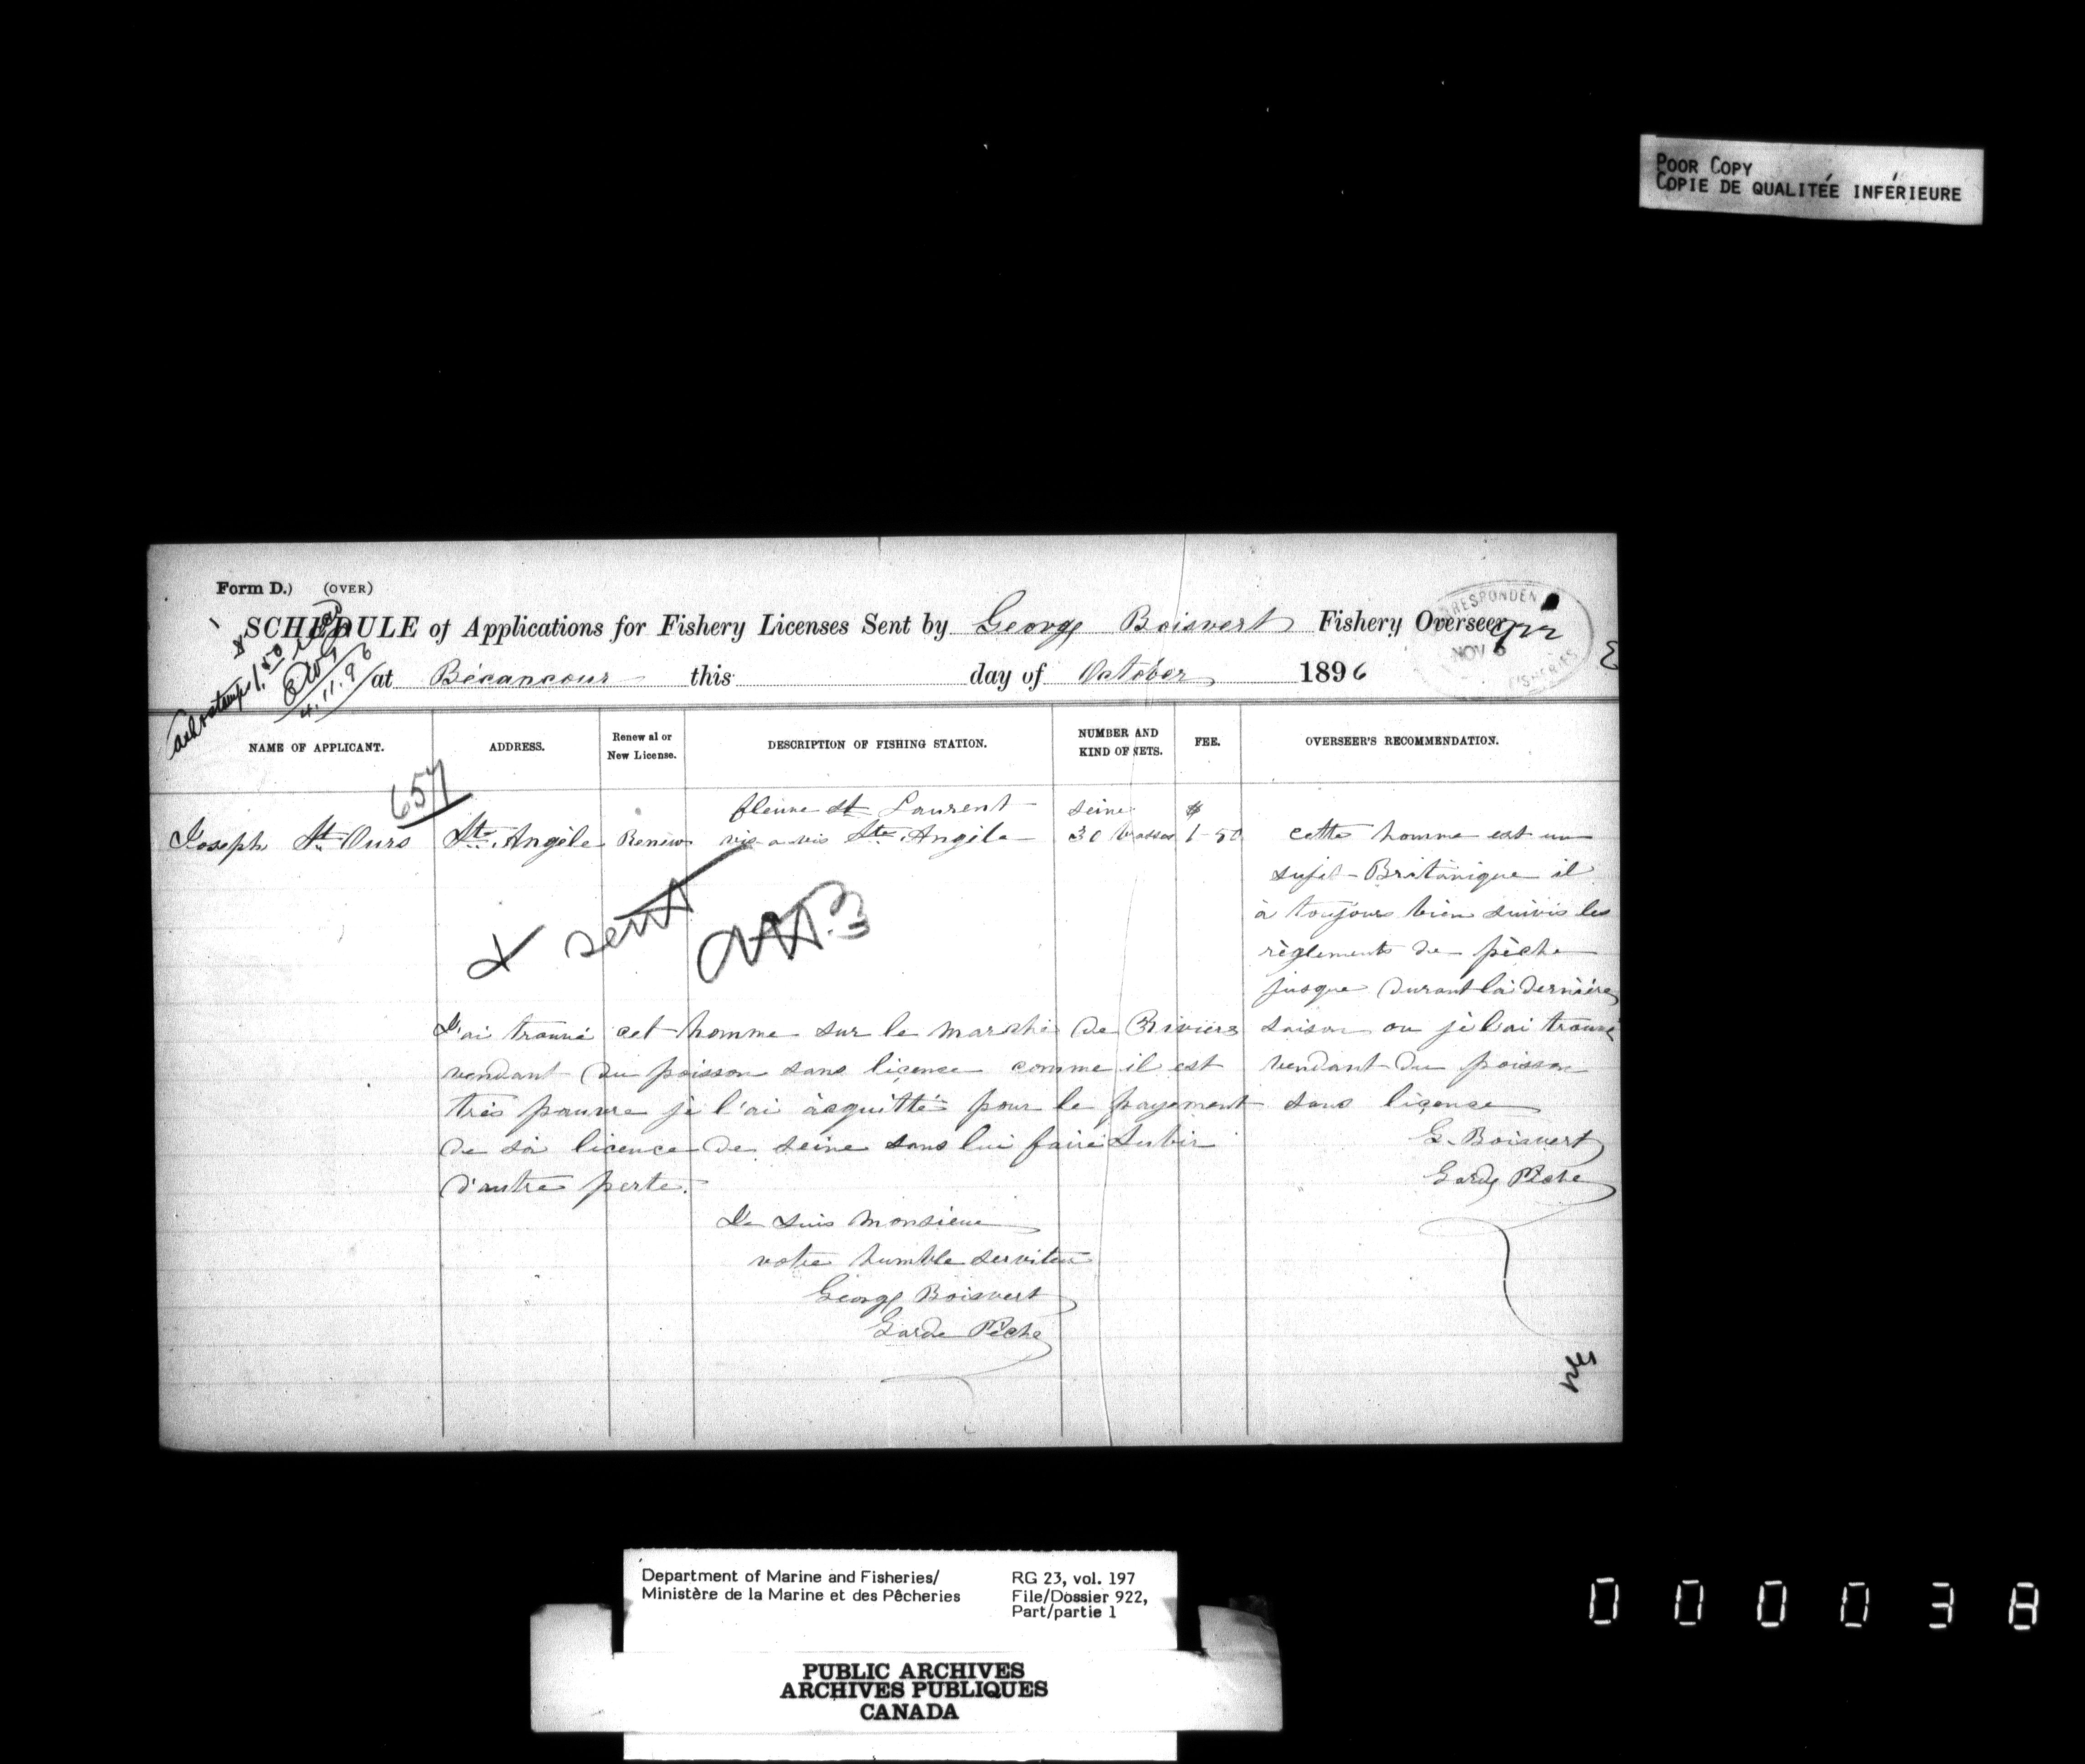 POOR COPY
COPIE DE QUALITÉE INFÉRIEURE
Form D.) (OVER)
SCHEDULE of Applications for Fishery Licenses Sent by George Boisvert Fishery Overseer
at Bécancour this day of October 1896
NOV 6
FISHERIES
1.50
4.11.96
NAME OF APPLICANT.
ADDRESS.
Renewal or
New License.
DESCRIPTION OF FISHING STATION.
NUMBER AND
KIND OF NETS.
FEE.
OVERSEER'S RECOMMENDATION.
657
fleuve St Laurent seine $
Joseph St. Ours Ste. Angèle Renew vis a vis Ste. Angèle 30 brasses 1-50
cette homme est un
sujet Britanique il
à toujours bien suivis les
règlements de pèche
jusque durant la dernière
saison ou jè l'ai trouvé
vendant du poisson
sans licence
G. Boisvert
Garde Pêche
sent
J'ai trouvé cet homme sur le marché de 3 Rivières
vendant du poisson sans licence comme il est
très pauvre jè l'ai àcquitté pour le payement
de sà licence de seine sans lui faire subir
d'autre perte.
Je suis Monsieur
votre humble serviteur
George Boisvert
Garde Pêche
Department of Marine and Fisheries/
Ministère de la Marine et des Pêcheries
RG 23, vol. 197
File/Dossier 922,
Part/partie 1
PUBLIC ARCHIVES
ARCHIVES PUBLIQUES
CANADA
000038